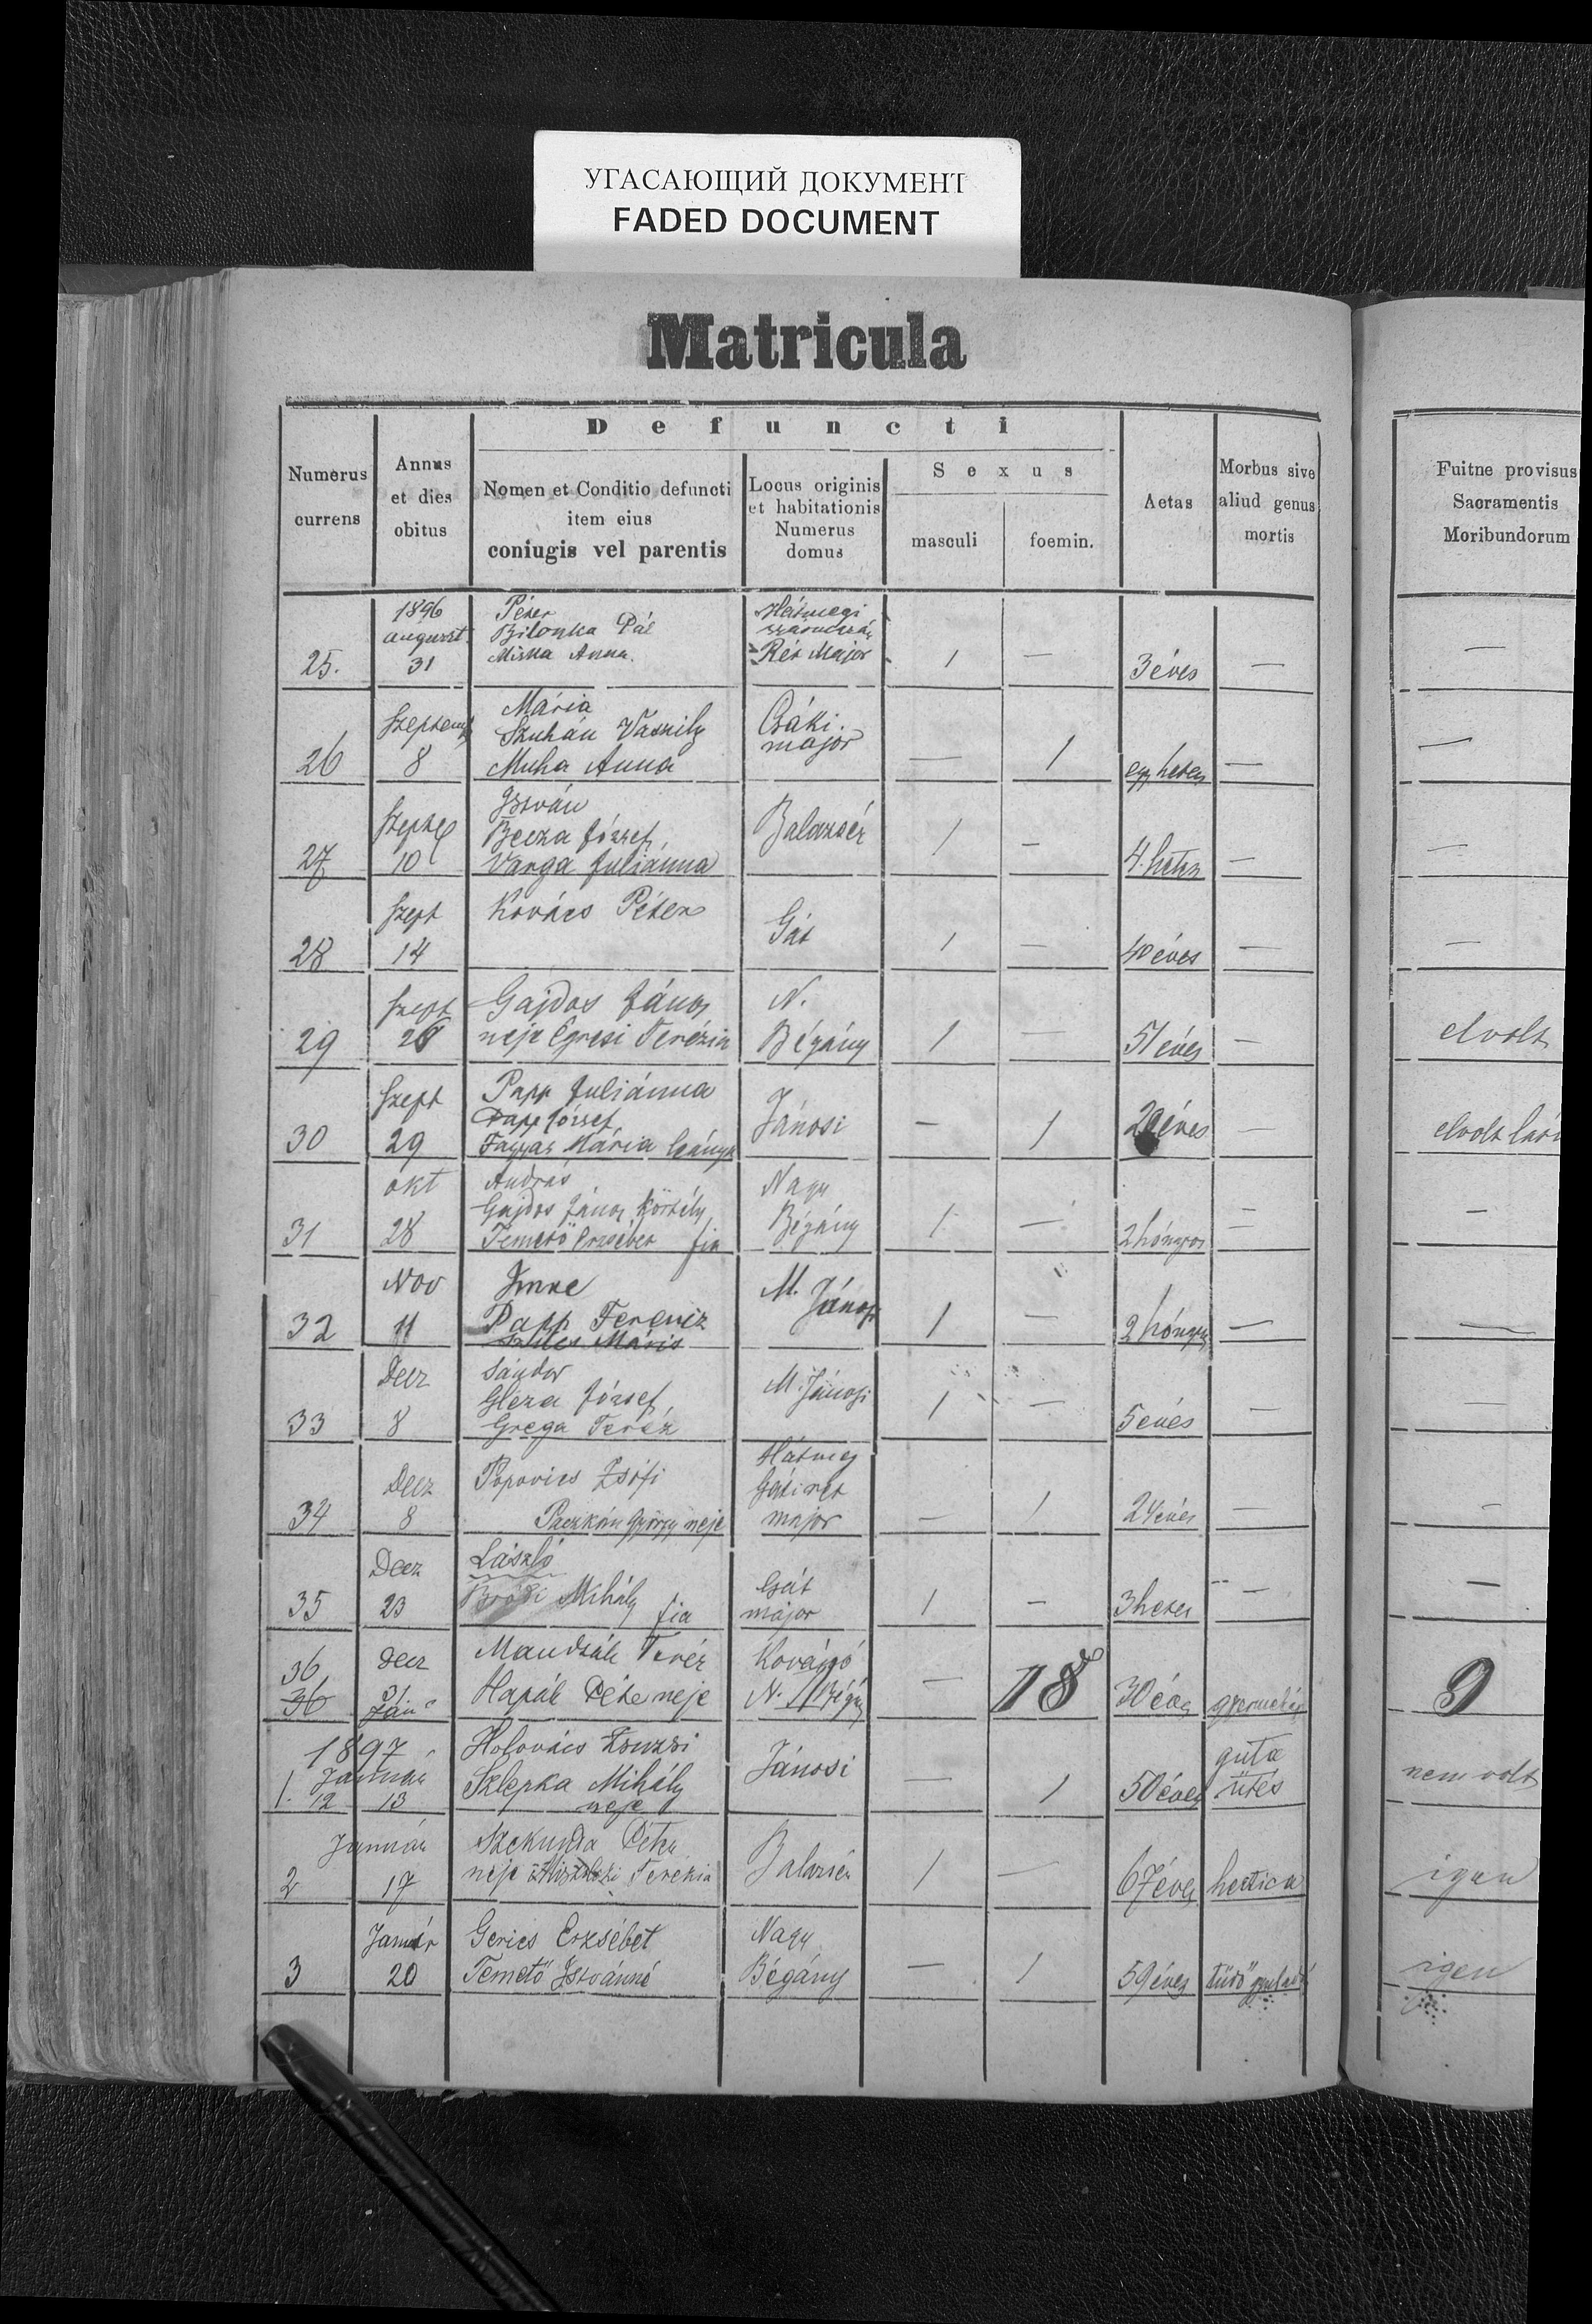 УГАСАЮЩИЙ ДОКУМЕНТ
FADED DOCUMENT
Matricula
Defuncti
Numerus currens
Annus et dies obitus
Nomen et Conditio defuncti item eius coniugis vel parentis
Locus originis et habitationis Numerus domus
Sexus
masculi
foemin.
Aetas
Morbus sive aliud genus mortis
Fuitne provisus Sacramentis Moribundorum
1896 Péter
august Bilonka Pál
25. 31 Miska Anna Rét Major 1 — 3 éves — —
Mária
Szuhán Vaszily Csáki
26 8 Muha Anna major — 1 egy hetes — —
István
Becza József Balazsér
27 10 Varga Juliánna 1 — 4. hetes — —
Szept Kovács Péter Gát
28 14 1 — 40 éves — —
Szept Gajdos János N.
29 neje Egresi Terézia Bégány 1 — 51 éves — elvolt
Szept Papp Juliánna
Papp József Jánosi
30 29 Mária leánya — 1 éves — elvolt
okt András Nagy
Gajdos János Bégány
31 28 Temető Erzsébet fia 1 — 2 hónapos — —
Nov Imre M. Jánosi
Papp Ferencz
32 11 Máris 1 — 2 hónapos — —
Decz Sándor
Gleza József M. Jánosi
33 8 Grega Teréz 1 — 5 éves — —
Decz Popovics Zsófi
34 8 György neje major — 1 24 éves — —
Decz László
Mihály Gát
35 23 fia major 1 — 3 hetes — —
36 Decz Teréz
36 31 Jan Hapák Péter neje N. Bégány — 18 30 éves 9
1897 Holovács Zsuzsi guta
Január Szlepka Mihály Jánosi
1. 12 13 neje — 1 50 éves ütés nem volt
Január Péter
2 17 neje Terézia Balazsér 1 — 67 éves hectica igen
Január Gerics Erzsébet Nagy
3 20 Temető Istvánné Bégány — 1 59 éves tüdő igen